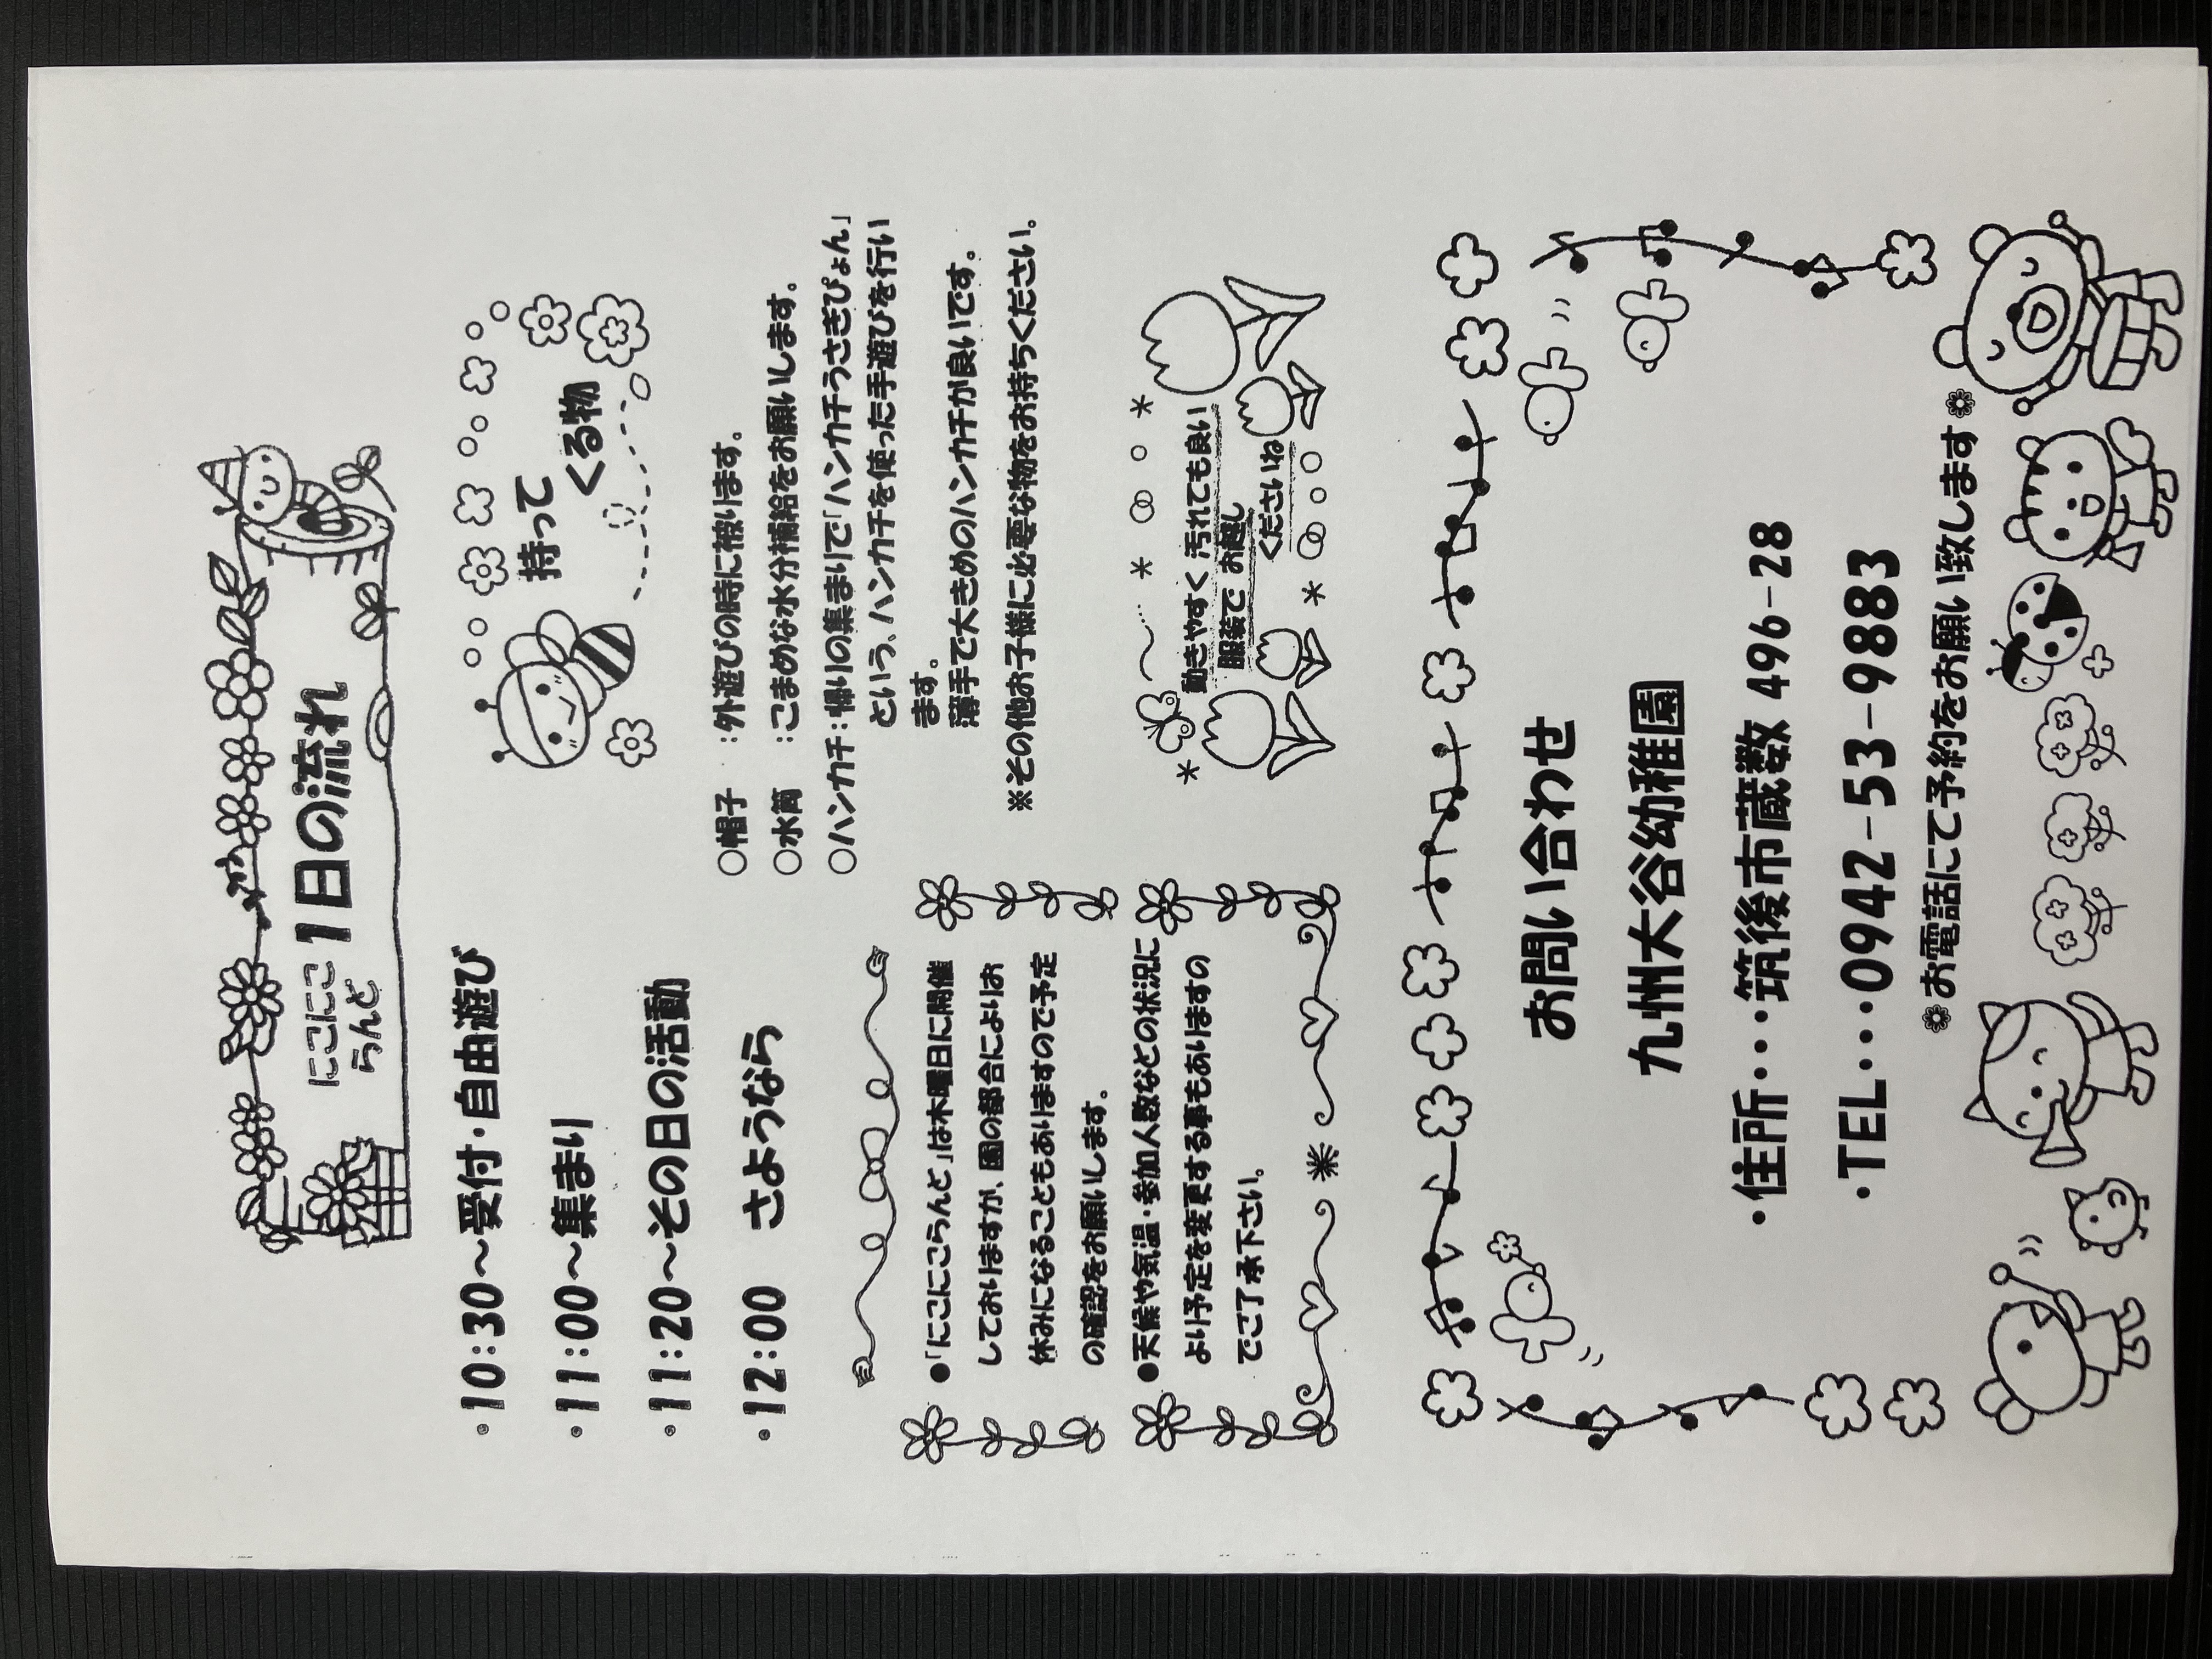 にこにこ
らんど
1日の流れ
・10:30～受付・自由遊び
・11:00～集まり
・11:20～その日の活動
・12:00 さようなら
持って
くる物
○帽子 :外遊びの時に被ります。
○水筒 :こまめな水分補給をお願いします。
○ハンカチ:帰りの集まりで「ハンカチうさぎぴょん」
という、ハンカチを使った手遊びを行い
ます。
薄手で大きめのハンカチが良いです。
※その他お子様に必要な物をお持ちください。
●「にこにこらんど」は木曜日に開催
しておりますが、園の都合によりお
休みになることもありますので予定
の確認をお願いします。
●天候や気温・参加人数などの状況に
より予定を変更する事もありますの
でご了承下さい。
動きやすく 汚れても良い
服装で お越し
くださいね
お問い合わせ
九州大谷幼稚園
・住所・・・・筑後市蔵数 496-28
・TEL・・・・0942-53-9883
❁お電話にて予約をお願い致します❁